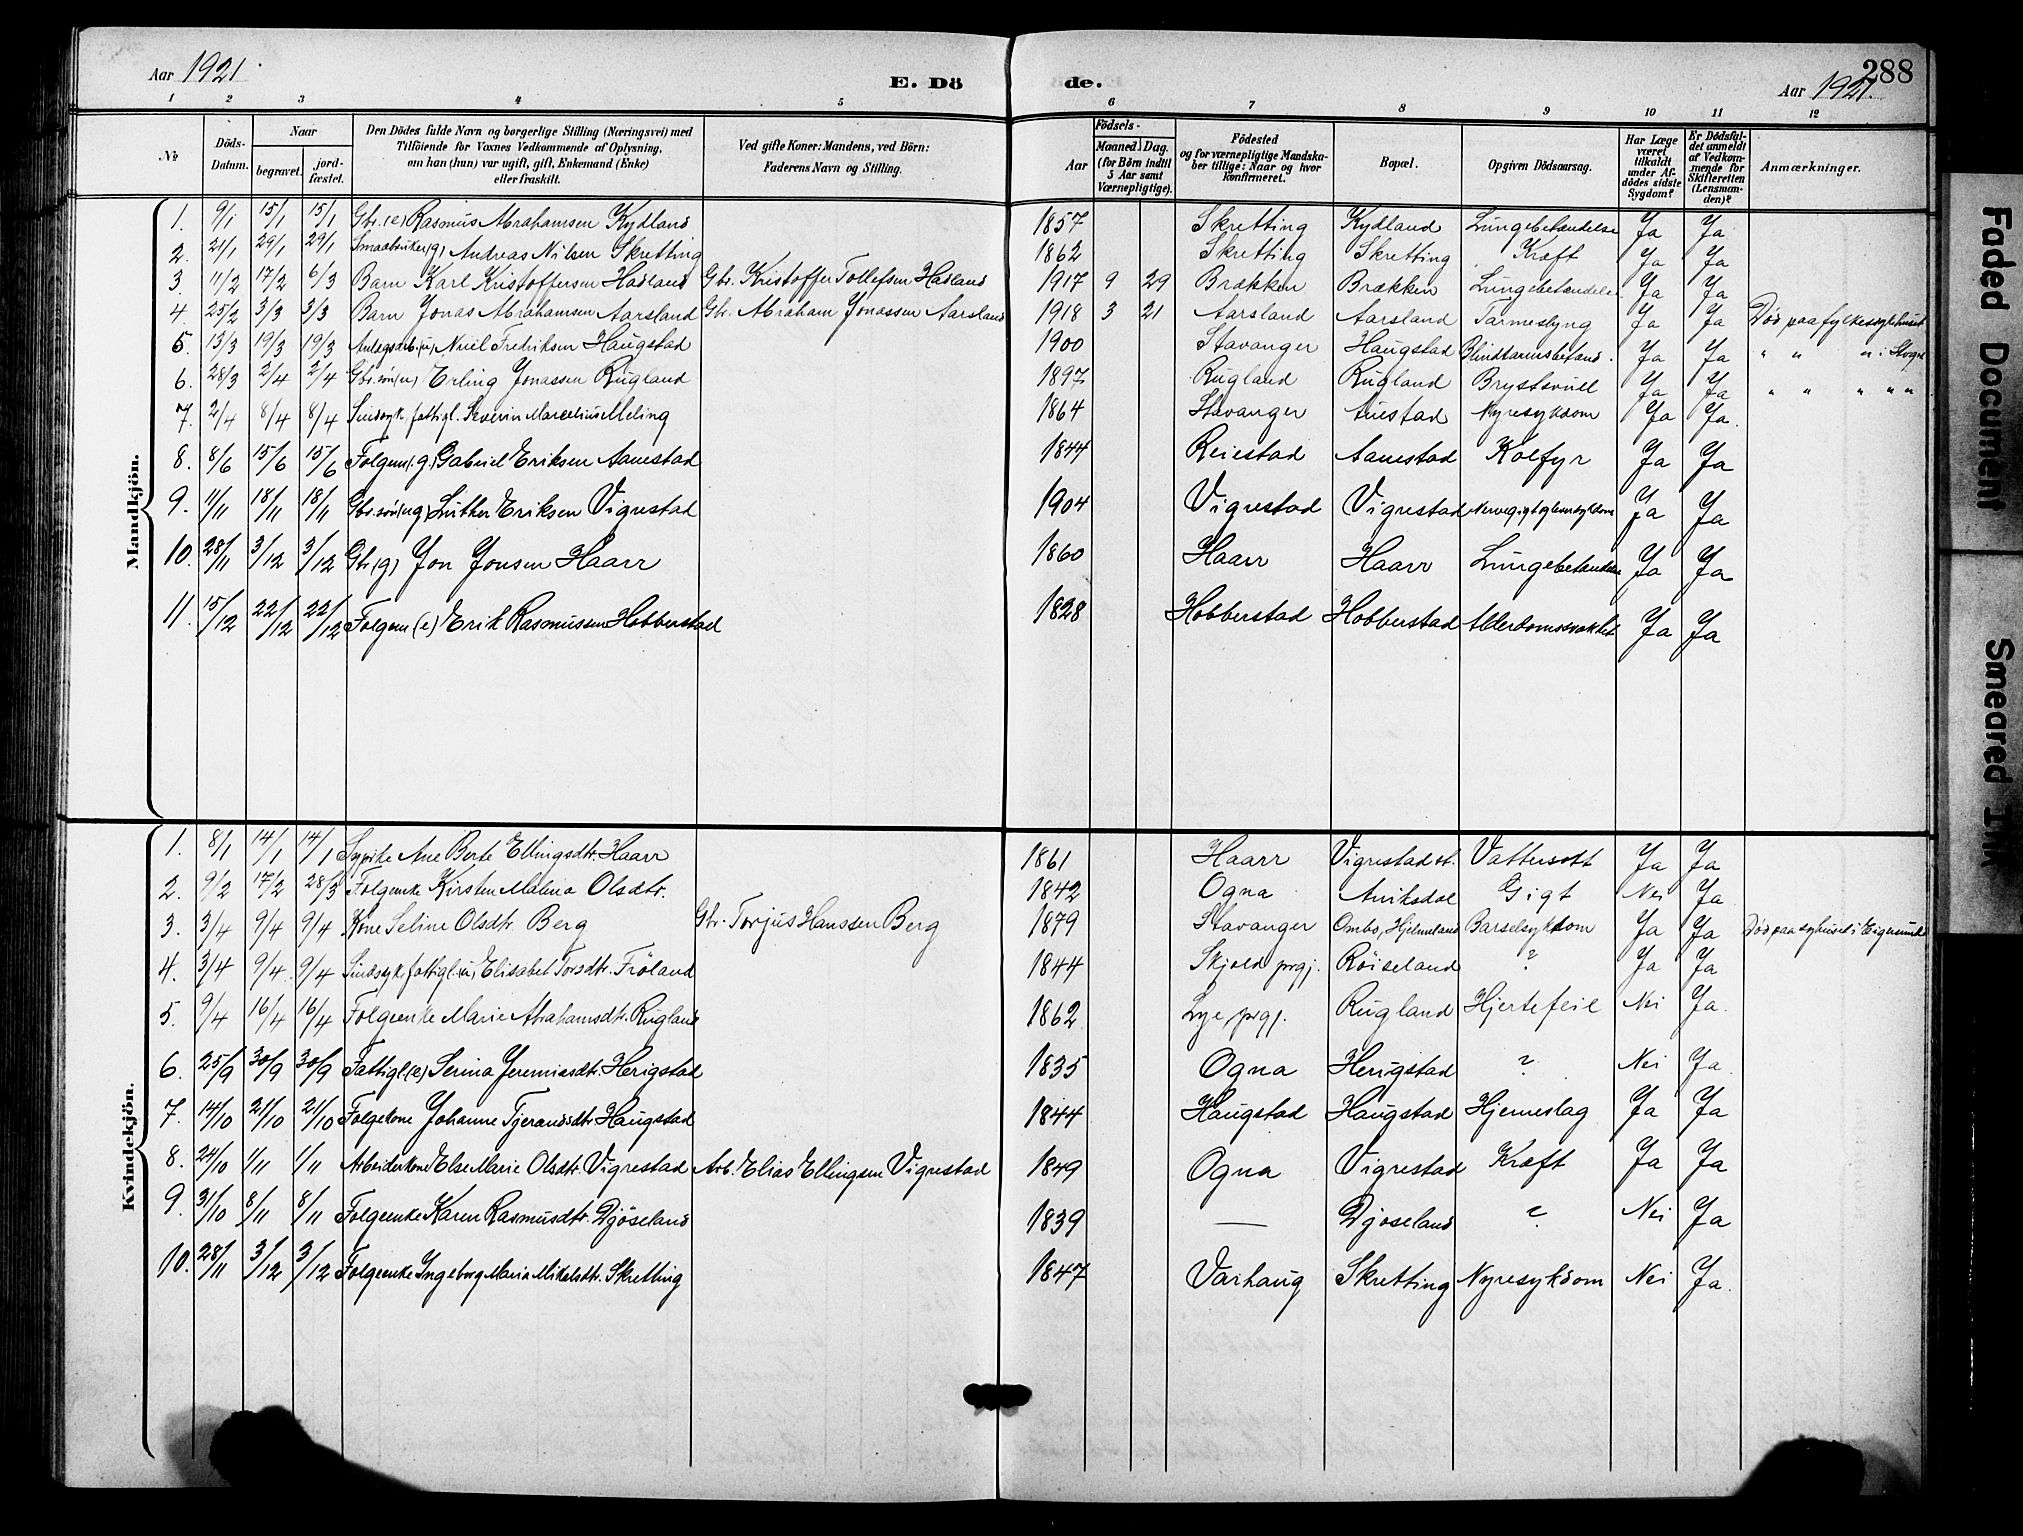 Aar 1921.
E. Dö de.
288
Aar 1921.
1 2 3 4 5 6 7 8 9 10 11 12
№
Döds-Datum.
Naar
begravet.
jordfæstet.
Den Dödes fulde Navn og borgerlige Stilling (Næringsvei) med Tilföiende for Voxnes Vedkommende af Oplysning, om han (hun) var ugift, gift, Enkemand (Enke) eller fraskilt.
Ved gifte Koner: Mandens, ved Börn: Faderens Navn og Stilling.
Födsels-
Aar
Maaned. Dag.
(for Börn indtil 5 Aar samt Værnepligtige).
Födested og for værnepligtige Mandskaber tillige: Naar og hvor konfirmeret.
Bopæl.
Opgiven Dödsaarsag.
Har Læge været tilkaldt under Afdödes sidste Sygdom?
Er Dödsfaldet anmeldt af Vedkommende for Skifteretten (Lensmanden)?
Anmærkninger.
Mandkjön.
1. 9/1 15/1 15/1 Gbr. (e) Rasmus Abrahamsen Kydland 1857 Skretting Kydland Lungebetændelse Ja Ja
2. 21/1 29/1 29/1 Smaabruker (g) Andreas Nilsen Skretting 1862 Skretting Skretting Kræft Ja Ja
3. 11/2 17/2 6/3 Barn Karl Kristoffersen Hadland Gbr. Kristoffer Tollefsen Hadland 1917 9 29 Brækken Brækken Lungebetændelse Ja Ja
4. 25/2 3/3 3/3 Barn Jonas Abrahamsen Aarsland Gbr. Abraham Jonassen Aarsland 1918 3 21 Aarsland Aarsland Tarmeslyng Ja Ja Död paa fylkessykehuset
5. 13/3 19/3 19/3 Anlægsarb. (u) Fredriksen Haugstad 1900 Stavanger Haugstad Blindtarmsbetænd. Ja Ja " " " i Stvgr
6. 28/3 2/4 2/4 Gbr. sön (u) Erling Jonassen Rugland 1897 Rugland Rugland Brystsvull Ja Ja " " " " "
7. 2/4 8/4 8/4 Sindsyk fattigl. Severin Marcelius Meling 1864 Stavanger Auestad Nyresykdom Ja Ja.
8. 8/6 15/6 15/6 Folgem. (g) Gabriel Eriksen Aanestad 1844 Reiestad Aanestad Kolfyr Ja Ja
9. 11/11 18/11 18/11 Gbr. sön (ug) Luther Eriksen Vigrestad 1904 Vigrestad Vigrestad Ja Ja
10. 28/11 3/12 3/12 Gbr (g) Jon Jonsen Haarr 1860 Haarr Haarr Lungebetændelse Ja Ja
11. 15/12 22/12 22/12 Folgem (e) Erik Rasmussen Hobberstad 1828 Hobberstad Hobberstad Alderdomssvakhet Ja Ja
Kvindekjön.
1. 8/1 14/1 14/1 Sypike Ane Berte Ellingsdtr. Haarr 1861 Haarr Vigrestad st. Vattersott Ja Ja
2. 9/2 17/2 28/3 Folgeenke Kirsten Malena Olsdtr. 1842 Ogna Aniksdal Gigt Nei Ja
3. 3/4 9/4 9/4 Kone Seline Olsdtr. Berg Gbr. Torjus Hanssen Berg 1879 Stavanger Ombo, Hjelmeland Barselsykdom Ja Ja Död paa sykhuset i Eigersund
4. 3/4 9/4 9/4 Sindsyk fattigl. (u) Elisabet Torsdtr. Fröland 1844 Skjold prgj. Röiseland ? Ja Ja
5. 9/4 16/4 16/4 Folgeenke Marie Abrahamsdtr. Rugland 1862 Lye prgj. Rugland Hjertefeil Nei Ja.
6. 25/9 30/9 30/9 Fattigl. (e) Serina Jeremiasdtr. Herigstad 1835 Ogna Herigstad ? Nei Ja.
7. 14/10 21/10 21/10 Folgekone Johanne Tjerandsdtr. Haugstad 1844 Haugstad Haugstad Hjerneslag Ja Ja
8. 24/10 1/11 1/11 Arbeiderkone Else Marie Olsdtr. Vigrestad Arb. Elias Ellingsen Vigrestad 1849 Ogna Vigrestad Kræft Ja Ja
9. 31/10 8/11 8/11 Folgeenke Karen Rasmusdtr. Djöseland 1839 — Djöseland ? Nei Ja
10. 28/11 3/12 3/12 Folgeenke Ingeborg Maria Mikalsdtr. Skretting 1847 Varhaug Skretting Nyresykdom Nei Ja.
Faded Document
Smeared Ink